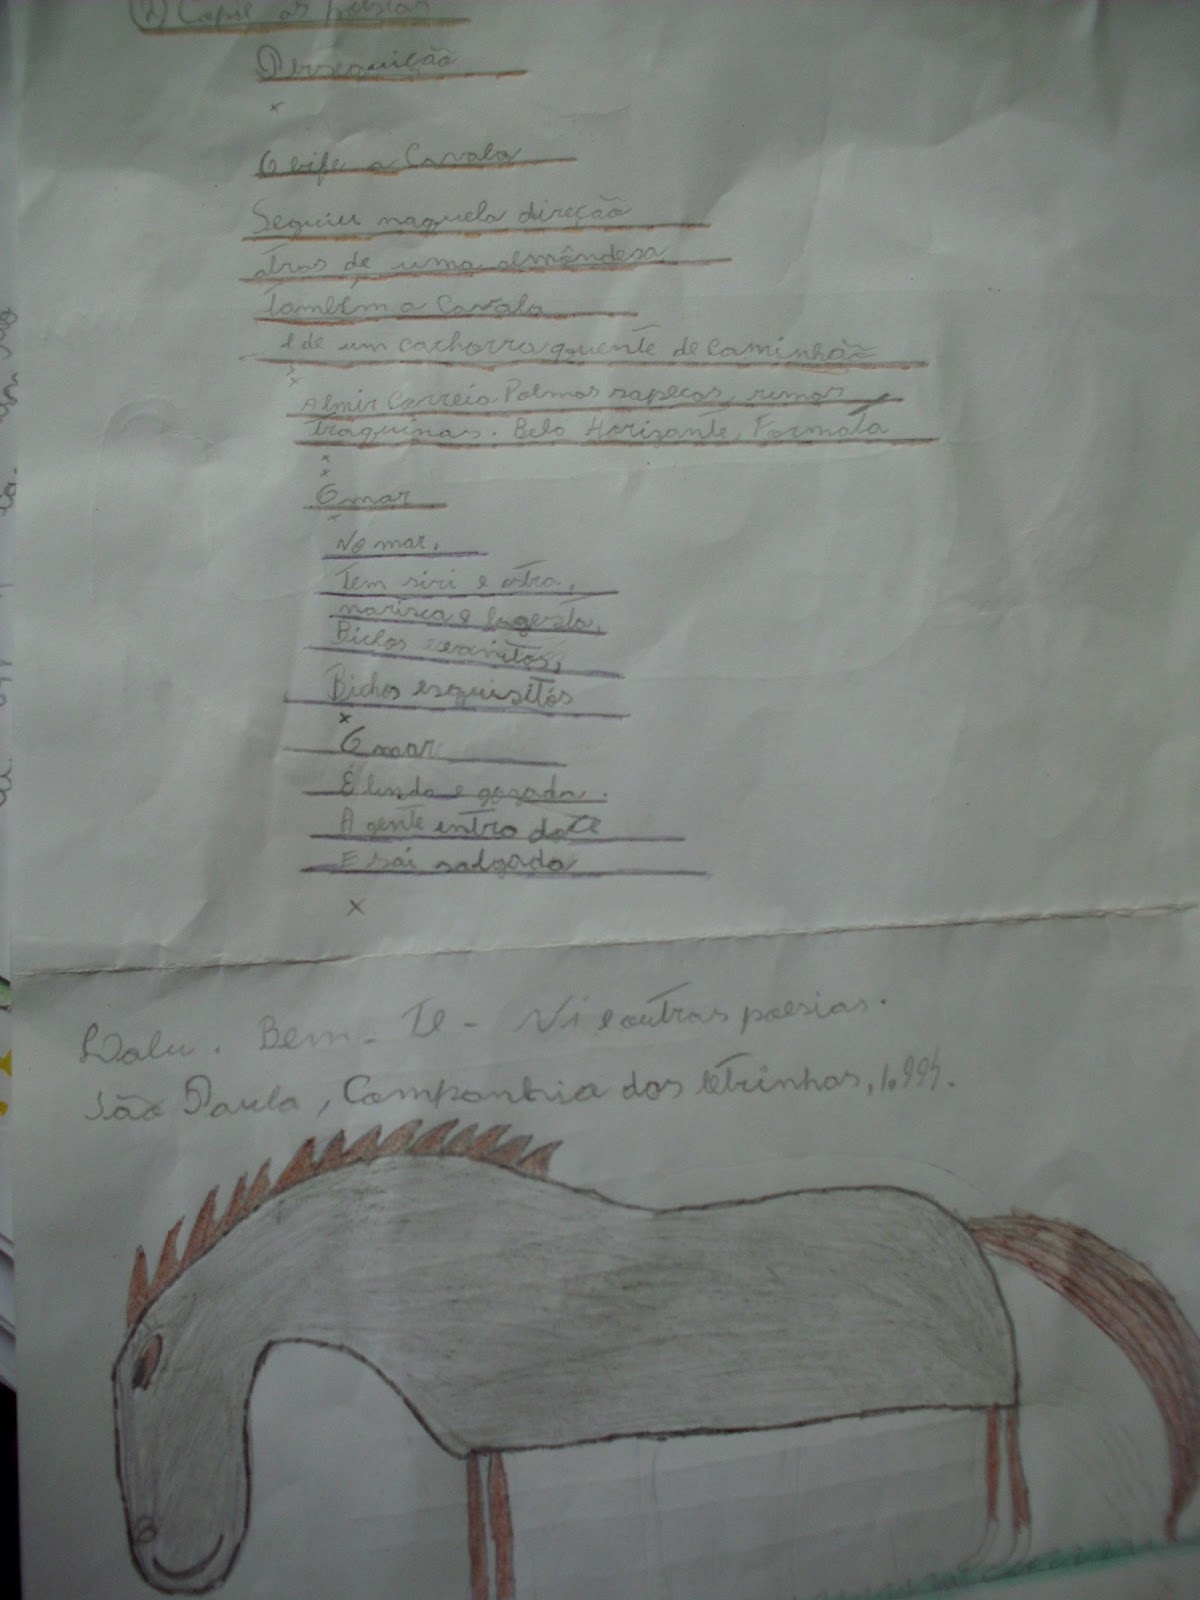 2) Copie as poesias
Perseguição
x
O bife a Cavalo
Seguiu naquela direção
atras de uma almôndesa
Também a Cavalo
e de um cachorro qquente de Caminhão
x
Almir Correia Polmas sapecas, rimas
traquinas. Belo Horisante, Formata
x
x
O mar
x
No mar,
Tem siri e ostra,
marisca e lagosta,
Bichos esquisitos
x
O mar
É lindo e gozado.
A gente entra doce
E sai salgado
x
Lalu. Bem-Te-Vi e outras poesias.
São Paulo, Companhia dos letrinhas, 1.994.